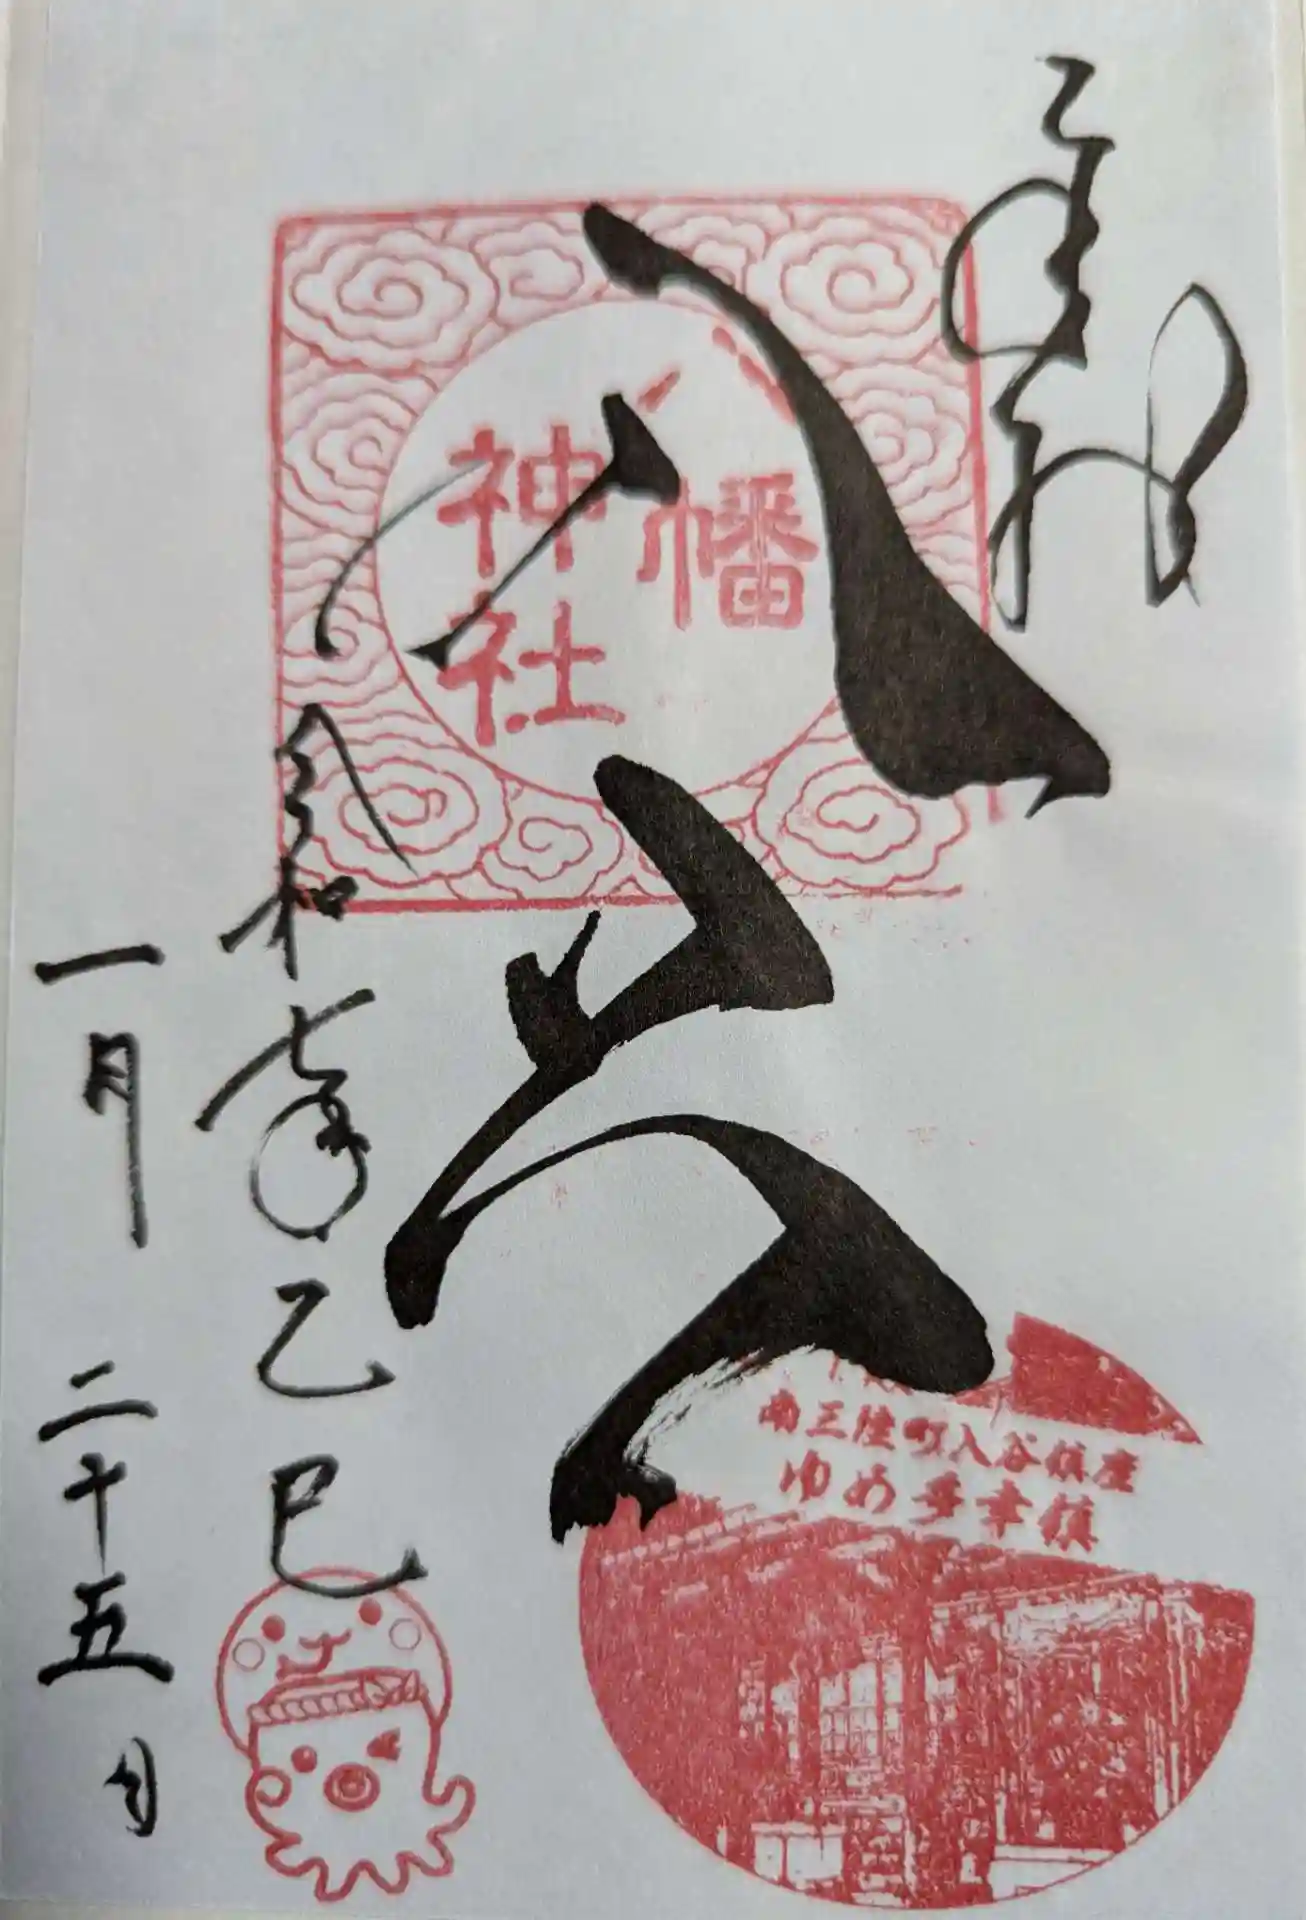 奉拝
八
八幡
神社
南三陸町入谷鎮座
ゆめ多幸鎮
令和七年乙巳
一月二十五日